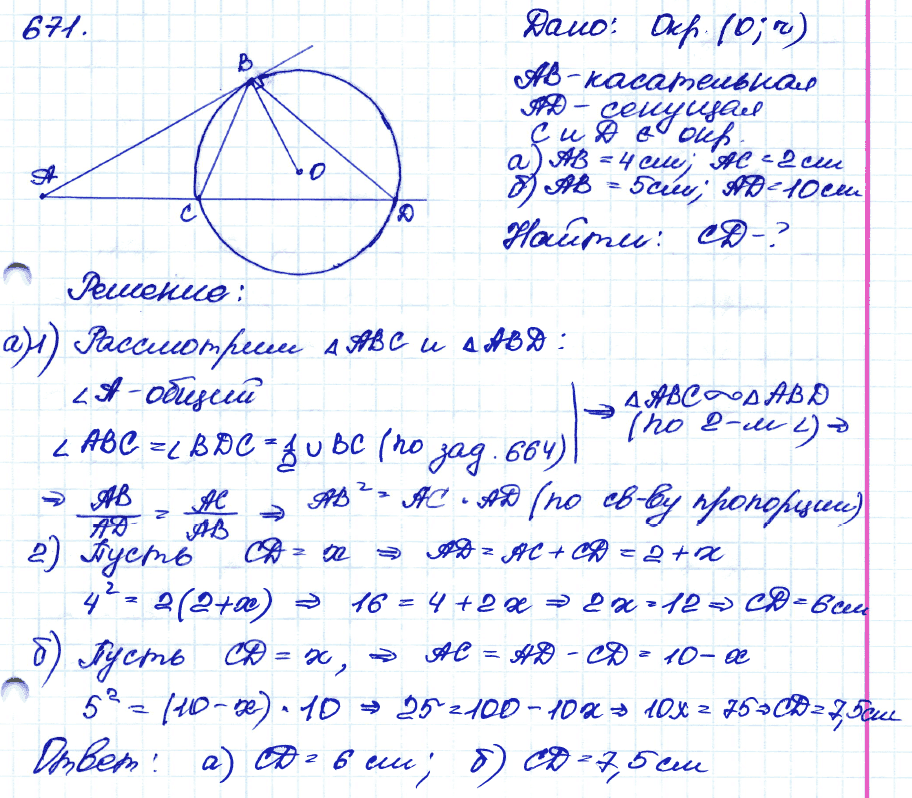 671.
Дано: Окр. (O; r)
AB - касательная
AD - секущая
C и D ∈ окр.
а) AB = 4 см; AC = 2 см
б) AB = 5 см; AD = 10 см
Найти: CD - ?
B
A
O
C
D
Решение:
а) 1) Рассмотрим △ABC и △ABD:
∠A - общий
∠ABC = ∠BDC = 1/2 ∪BC (по зад. 664)
⇒ △ABC ∼ △ABD
(по 2-м ∠) ⇒
⇒ AB/AD = AC/AB ⇒ AB² = AC · AD (по св-ву пропорции)
2) Пусть CD = x ⇒ AD = AC + CD = 2 + x
4² = 2(2+x) ⇒ 16 = 4 + 2x ⇒ 2x = 12 ⇒ CD = 6 см
б) Пусть CD = x, ⇒ AC = AD - CD = 10 - x
5² = (10-x) · 10 ⇒ 25 = 100 - 10x ⇒ 10x = 75 ⇒ CD = 7,5 см
Ответ: а) CD = 6 см; б) CD = 7,5 см